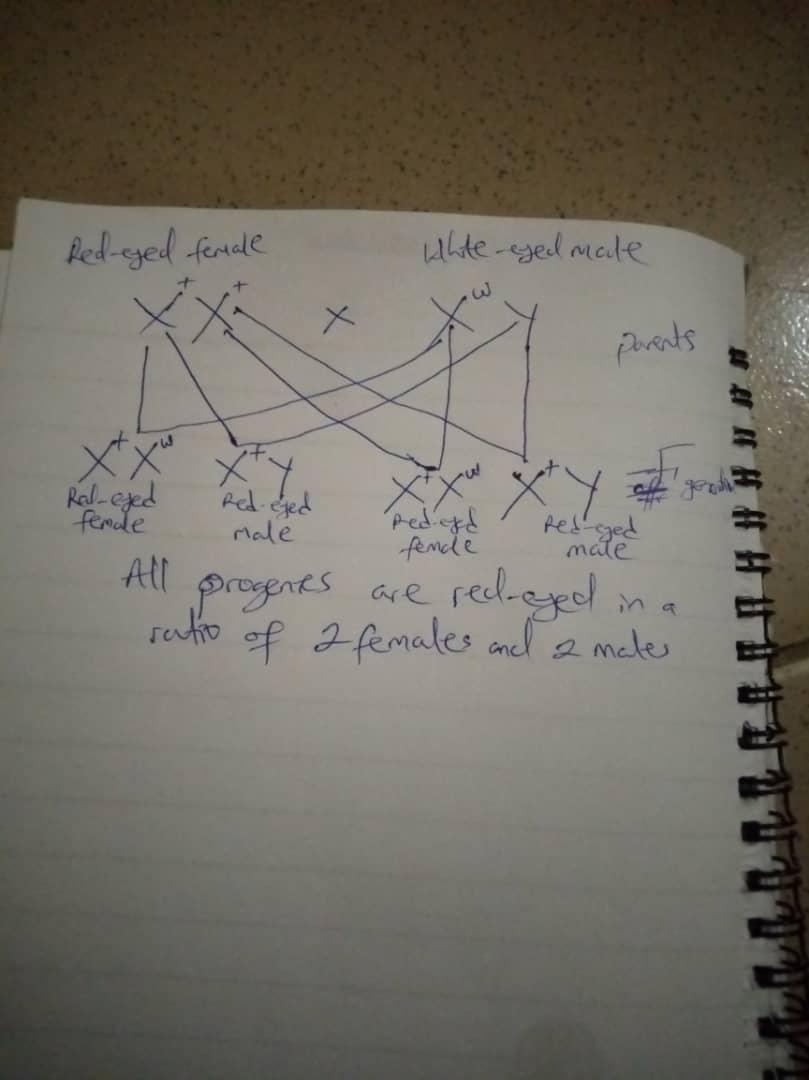 Red-eyed female White-eyed male
X⁺ X⁺ X Xʷ Y
parents
X⁺Xʷ X⁺Y X⁺Xʷ X⁺Y F₁
Red-eyed Red-eyed Red-eyed Red-eyed
female male female male
All progenies are red-eyed in a
ratio of 2 females and 2 males